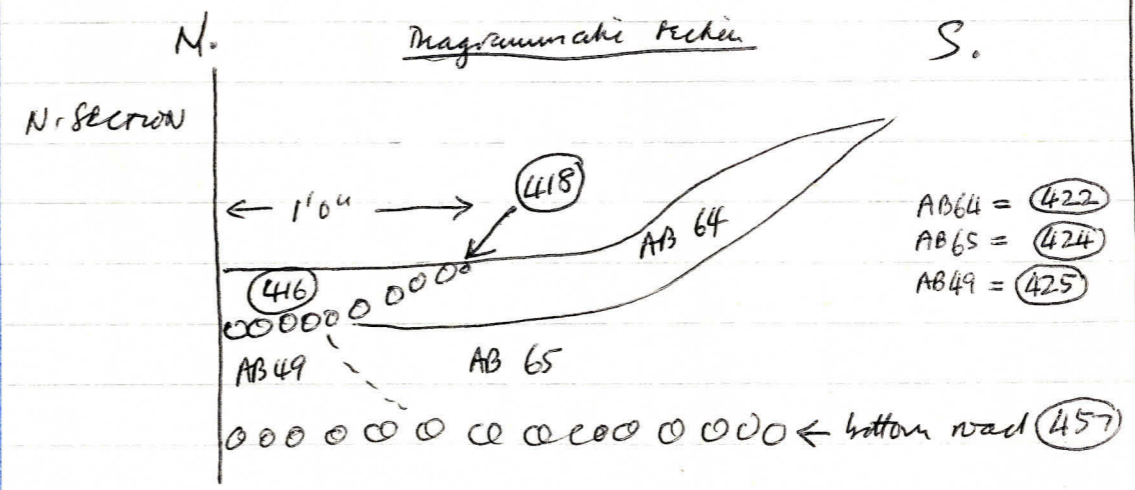 N. Diagrammatic section S.
N. SECTION
← 1'0" →
418
AB 64
416
AB64 = 422
AB65 = 424
AB49 = 425
AB 49
AB 65
← bottom road 457